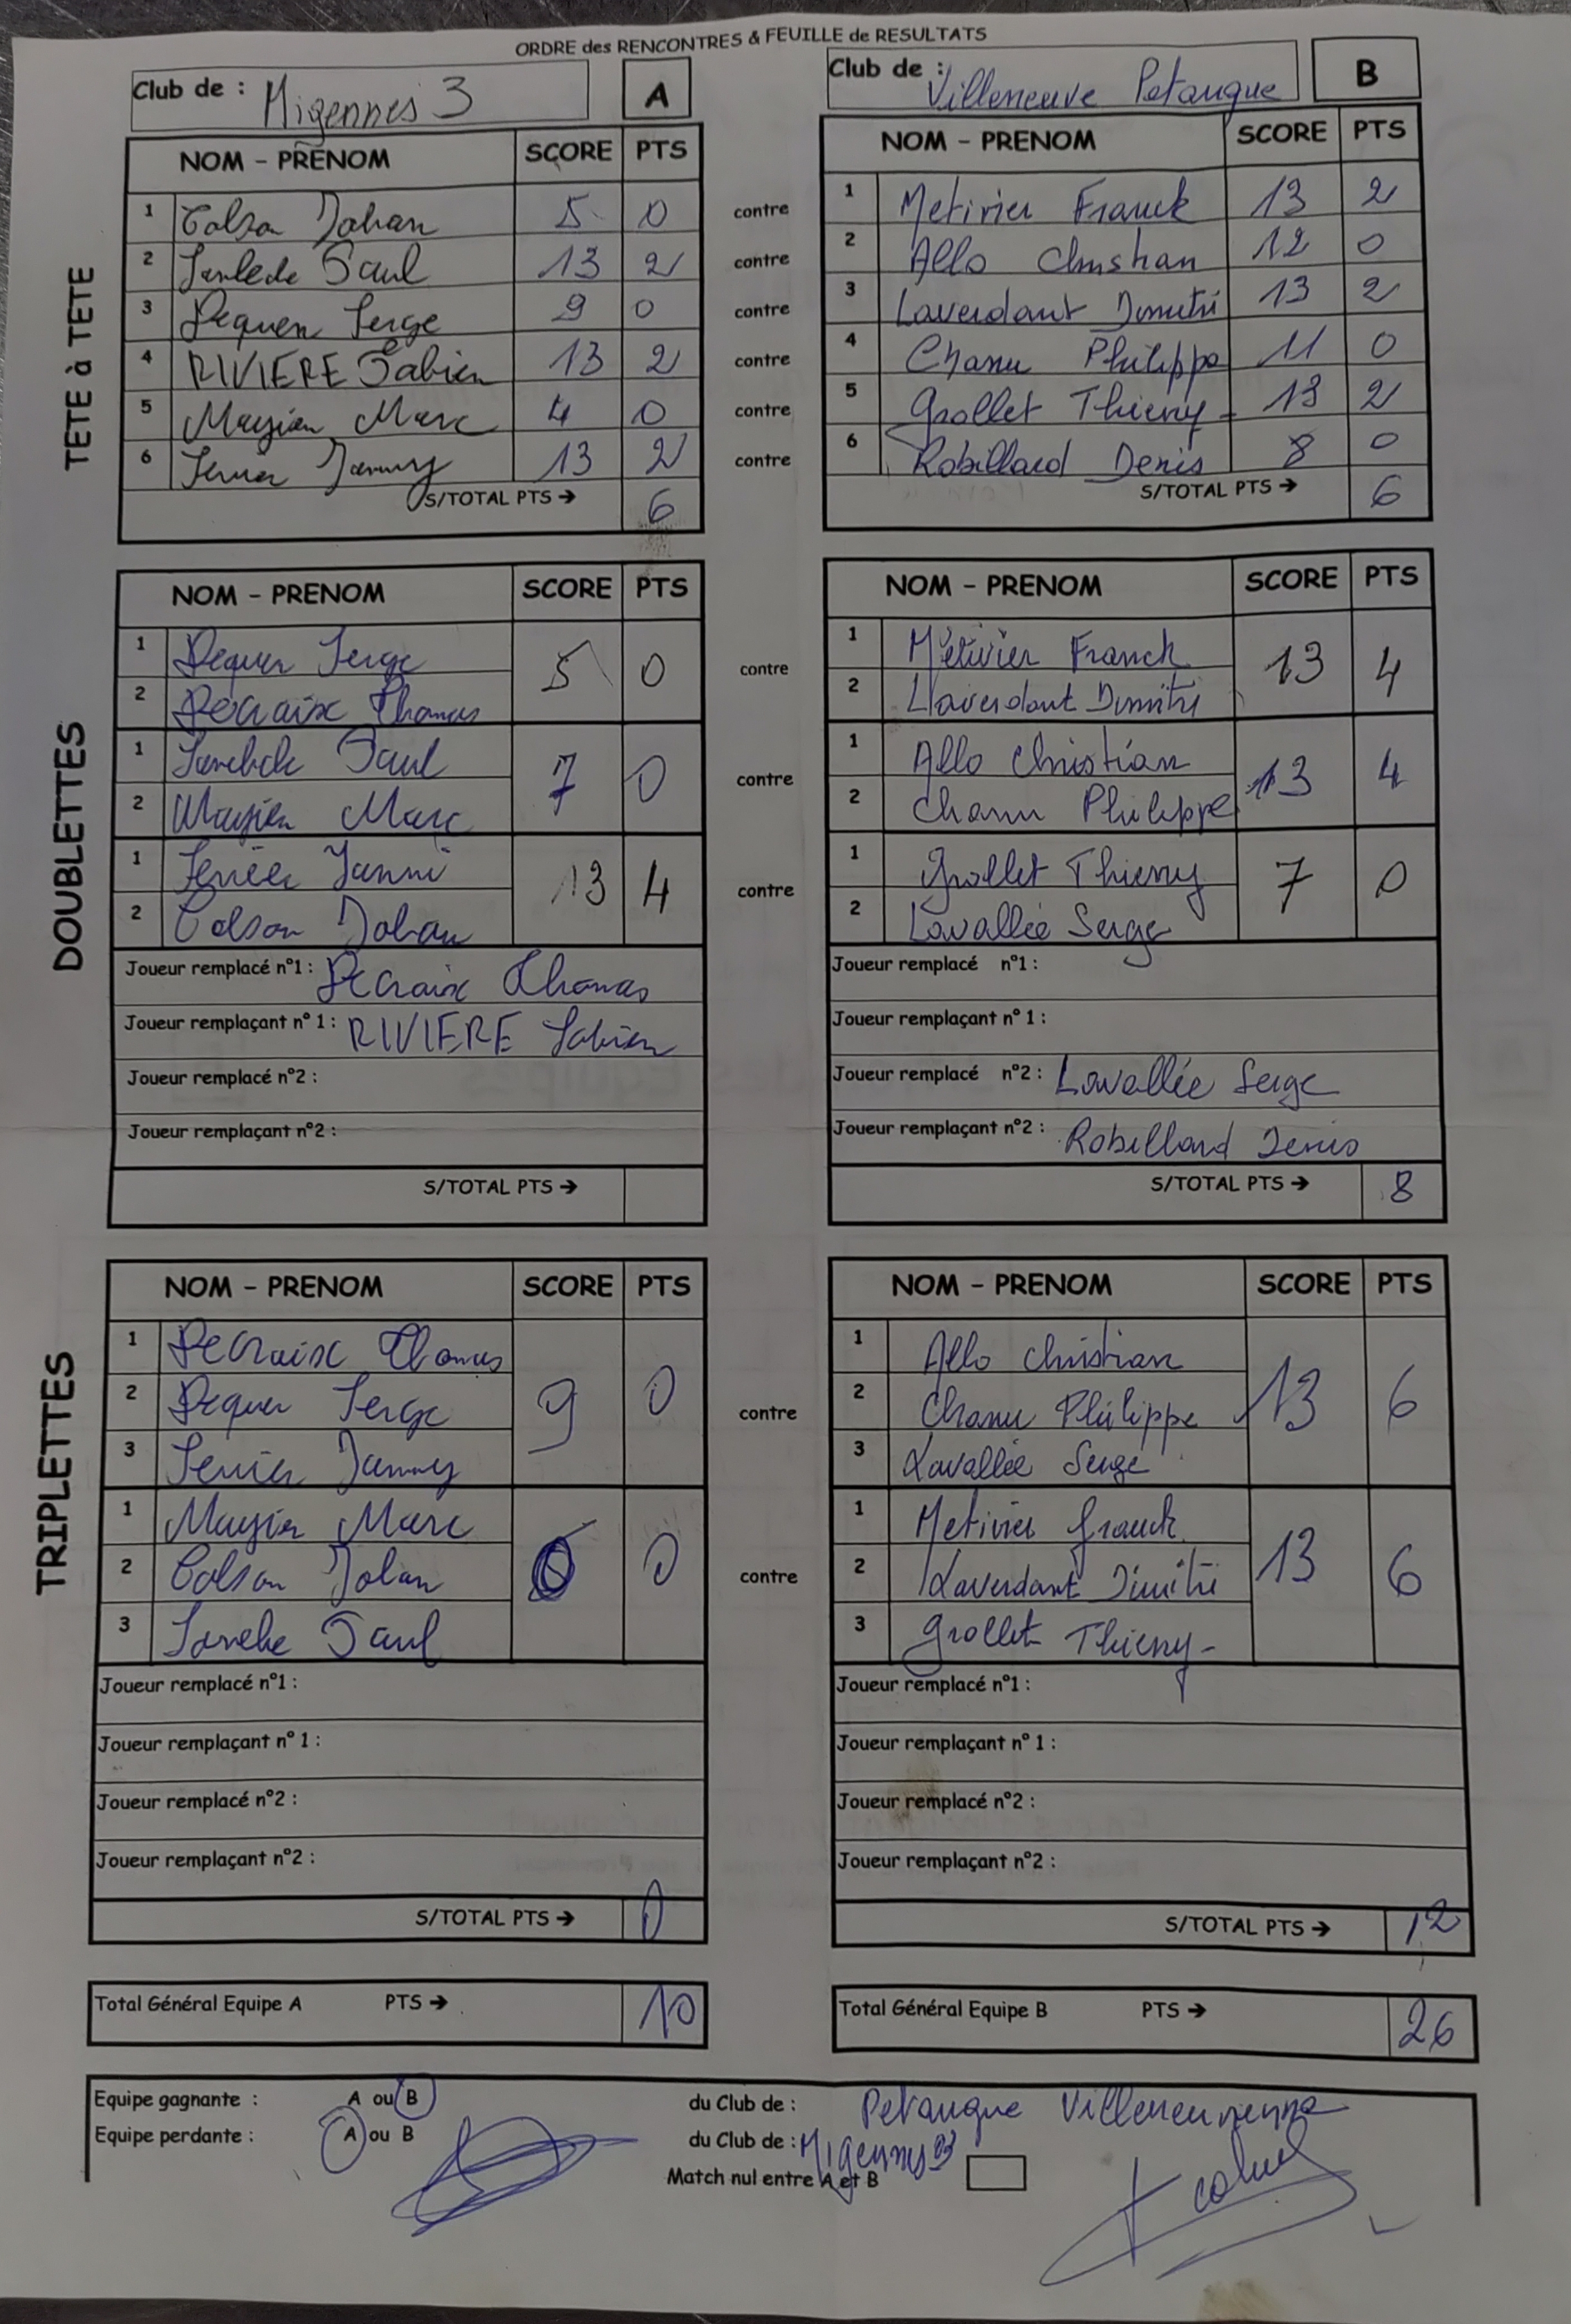 ORDRE des RENCONTRES & FEUILLE de RESULTATS
Club de : Migennes 3 A
Club de : Villeneuve Petanque B
TETE à TETE
NOM - PRENOM SCORE PTS NOM - PRENOM SCORE PTS
1 Colson Johan 5 0 contre 1 Metivier Franck 13 2
2 Paul 13 2 contre 2 Allo Christian 12 0
3 Dequen Serge 9 0 contre 3 Laverdant Dimitri 13 2
4 RIVIERE Fabien 13 2 contre 4 Chanu Philippe 11 0
5 Marc 4 0 contre 5 Grollet Thierry 13 2
6 13 2 contre 6 Robillard Denis 8 0
S/TOTAL PTS → 6 S/TOTAL PTS → 6
DOUBLETTES
NOM - PRENOM SCORE PTS NOM - PRENOM SCORE PTS
1 Dequen Serge 5 0 contre 1 Métivier Franck 13 4
2 Decraix Thomas 2 Laverdant Dimitri
1 Paul 7 0 contre 1 Allo Christian 13 4
2 Marc 2 Chanu Philippe
1 Yanni 13 4 contre 1 Grollet Thierry 7 0
2 Colson Johan 2 Lavallée Serge
Joueur remplacé n°1 : Decraix Thomas Joueur remplacé n°1 :
Joueur remplaçant n° 1 : RIVIERE Fabien Joueur remplaçant n° 1 :
Joueur remplacé n°2 : Joueur remplacé n°2 : Lavallée Serge
Joueur remplaçant n°2 : Joueur remplaçant n°2 : Robillard Denis
S/TOTAL PTS → S/TOTAL PTS → 8
TRIPLETTES
NOM - PRENOM SCORE PTS NOM - PRENOM SCORE PTS
1 Decraix Thomas 9 0 contre 1 Allo Christian 13 6
2 Dequen Serge 2 Chanu Philippe
3 3 Lavallée Serge
1 Marc 0 contre 1 Metivier Franck 13 6
2 Colson Johan 2 Laverdant Dimitri
3 Paul 3 Grollet Thierry
Joueur remplacé n°1 : Joueur remplacé n°1 :
Joueur remplaçant n° 1 : Joueur remplaçant n° 1 :
Joueur remplacé n°2 : Joueur remplacé n°2 :
Joueur remplaçant n°2 : Joueur remplaçant n°2 :
S/TOTAL PTS → 0 S/TOTAL PTS → 12
Total Général Equipe A PTS → 10 Total Général Equipe B PTS → 26
Equipe gagnante : A ou B du Club de : Petanque Villeneuvienne
Equipe perdante : A ou B du Club de : Migennes 3
Match nul entre A et B